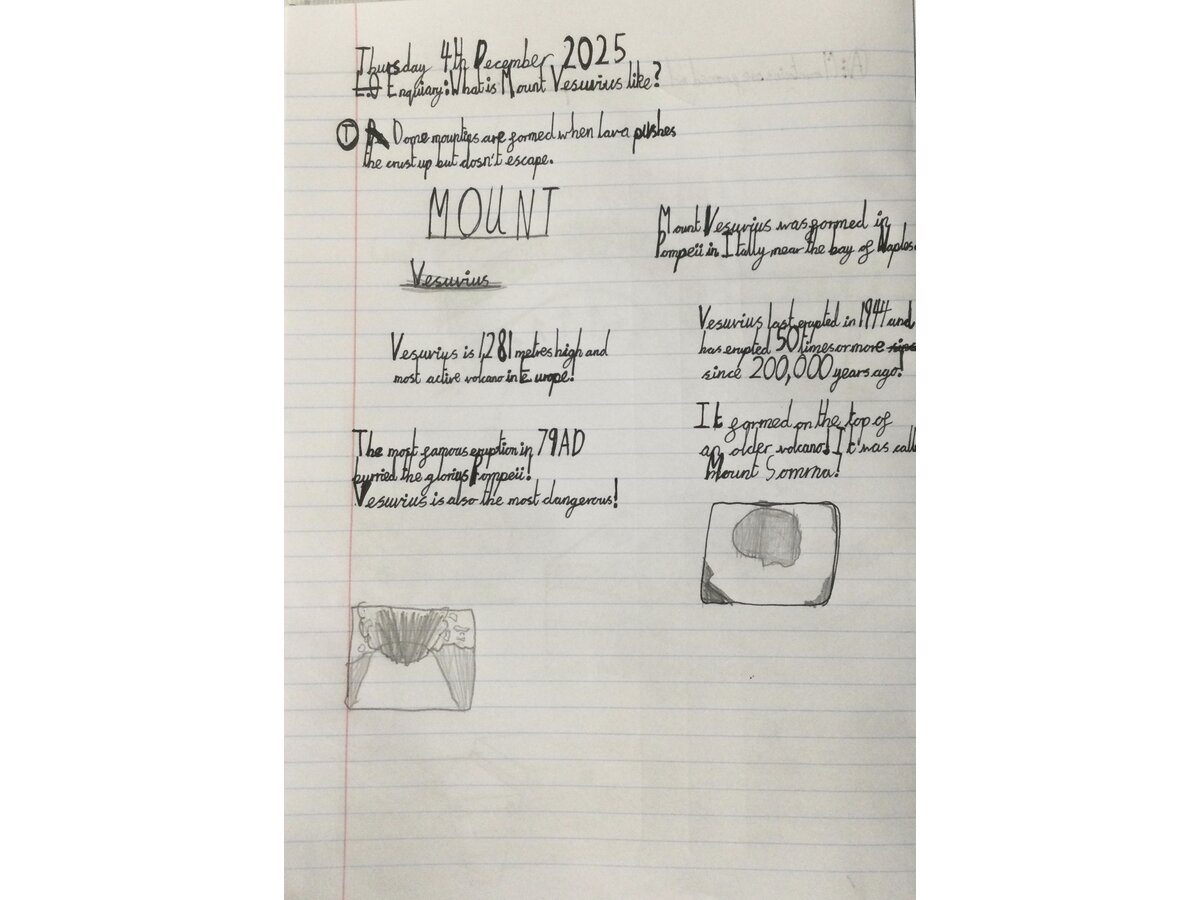 Thursday 4th December 2025
L.O Enquiary: What is Mount Vesuvius like?
T Dome mountigs are formed when lava pushes
the crust up but dosn't escape.
MOUNT
Vesuvius
Mount Vesuvius was formed in
Pompeii in Itally near the bay of Naples.
Vesuvius is 1,281 metres high and
most active volcano in Europe!
Vesuvius last erupted in 1944 and
has erupted 50 times or more
since 200,000 years ago!
The most famous eruption in 79AD
burried the glorius Pompeii!
Vesuvius is also the most dangerous!
It formed on the top of
an older volcano! It was calle
Mount Somma!